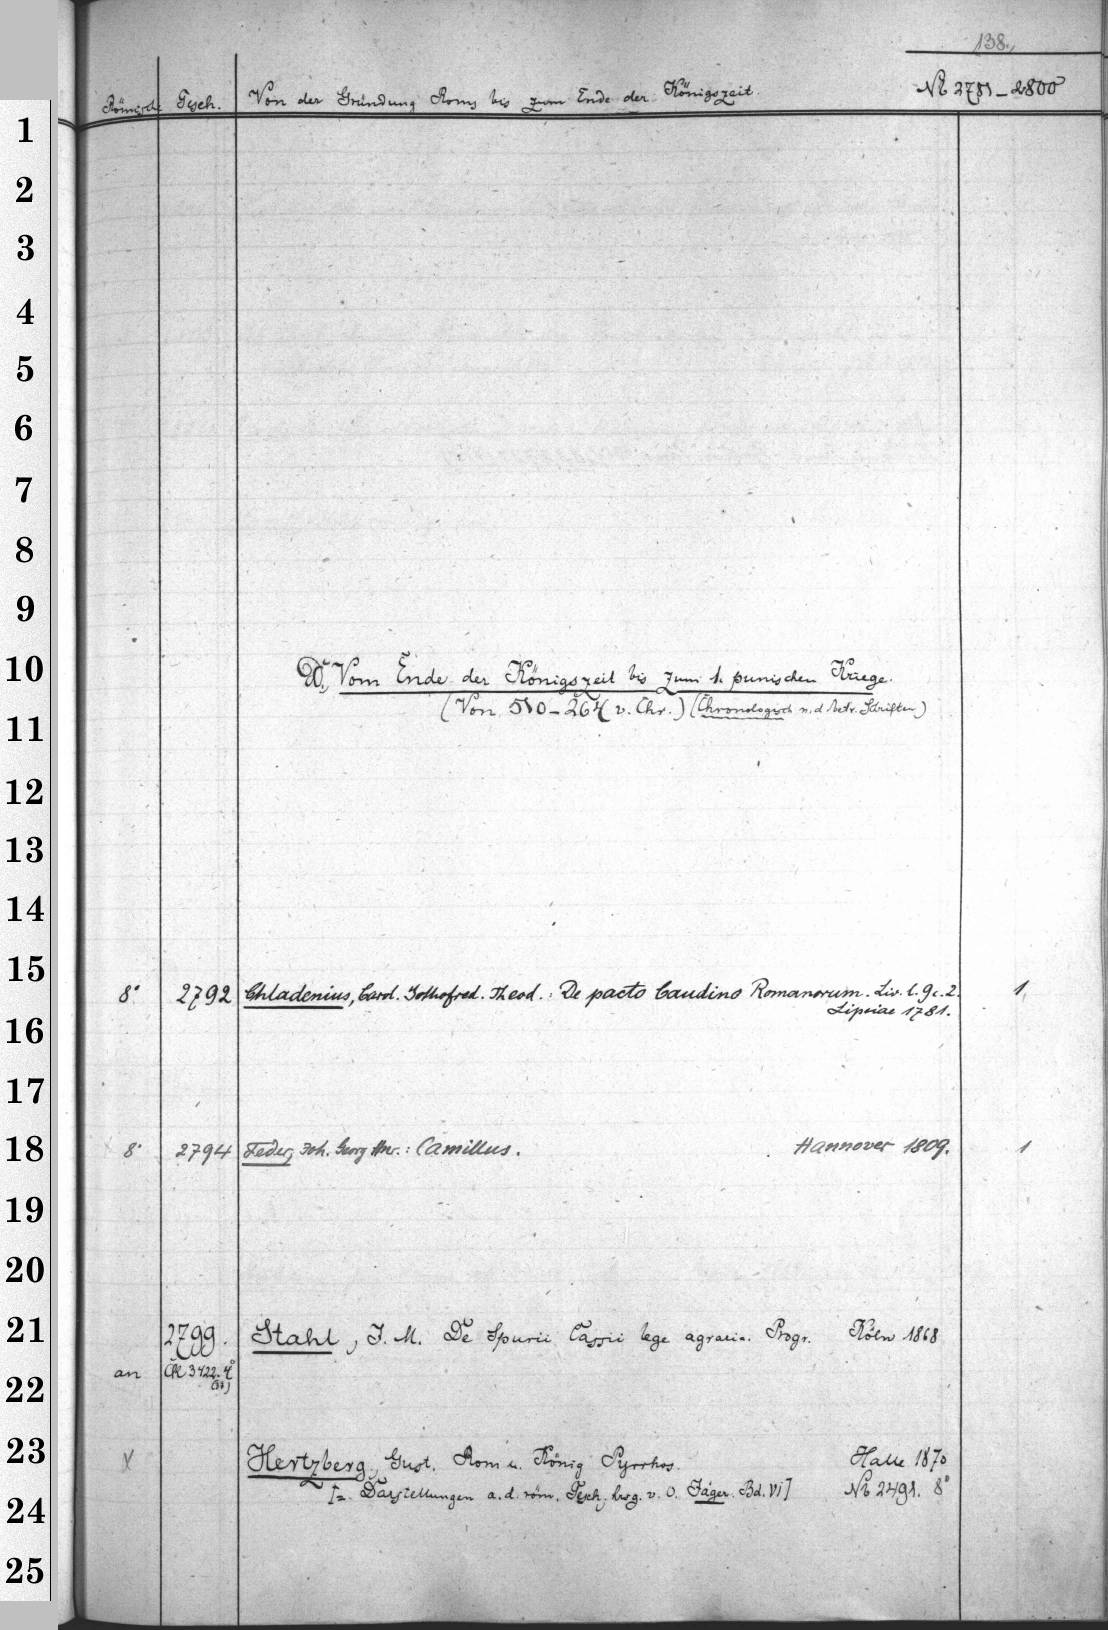 138.
Römische Gesch. Von der Gründung Roms bis zum Ende der Königszeit. № 2781-2800
1
2
3
4
5
6
7
8
9
10
Vom Ende der Königszeit bis zum 1. punischen Kriege.
(Von 510-264 v. Chr.) (Chronologisch n. d. betr. Schriften)
11
12
13
14
15
8° 2792 Chladenius, Carol. Gotthofred. Theod.: De pacto Caudino Romanorum. Liv. l. 9 c. 2. 1,
Lipsiae 1781.
16
17
18
8° 2794 Feder, Joh. Georg Hnr.: Camillus. Hannover 1809. 1
19
20
21
2799. Stahl, J. M. De Spurii Cassii lege agraria. Progr. Köln 1868
an 3422. 4°
22
23
X Hertzberg, Gust. Rom u. König Pyrrhos. Halle 1870
[= Darstellungen a. d. röm. Gesch., hrsg. v. O. Jäger. Bd. VI] № 2491. 8°
24
25